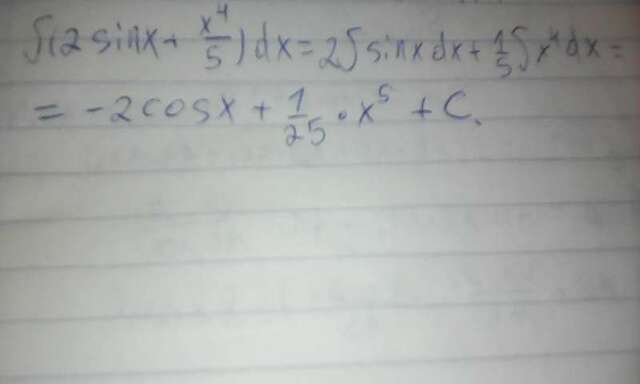 ∫(2 sinx + x⁴/5)dx = 2∫sinx dx + 1/5∫x⁴dx =
= -2cosx + 1/25 · x⁵ + C.